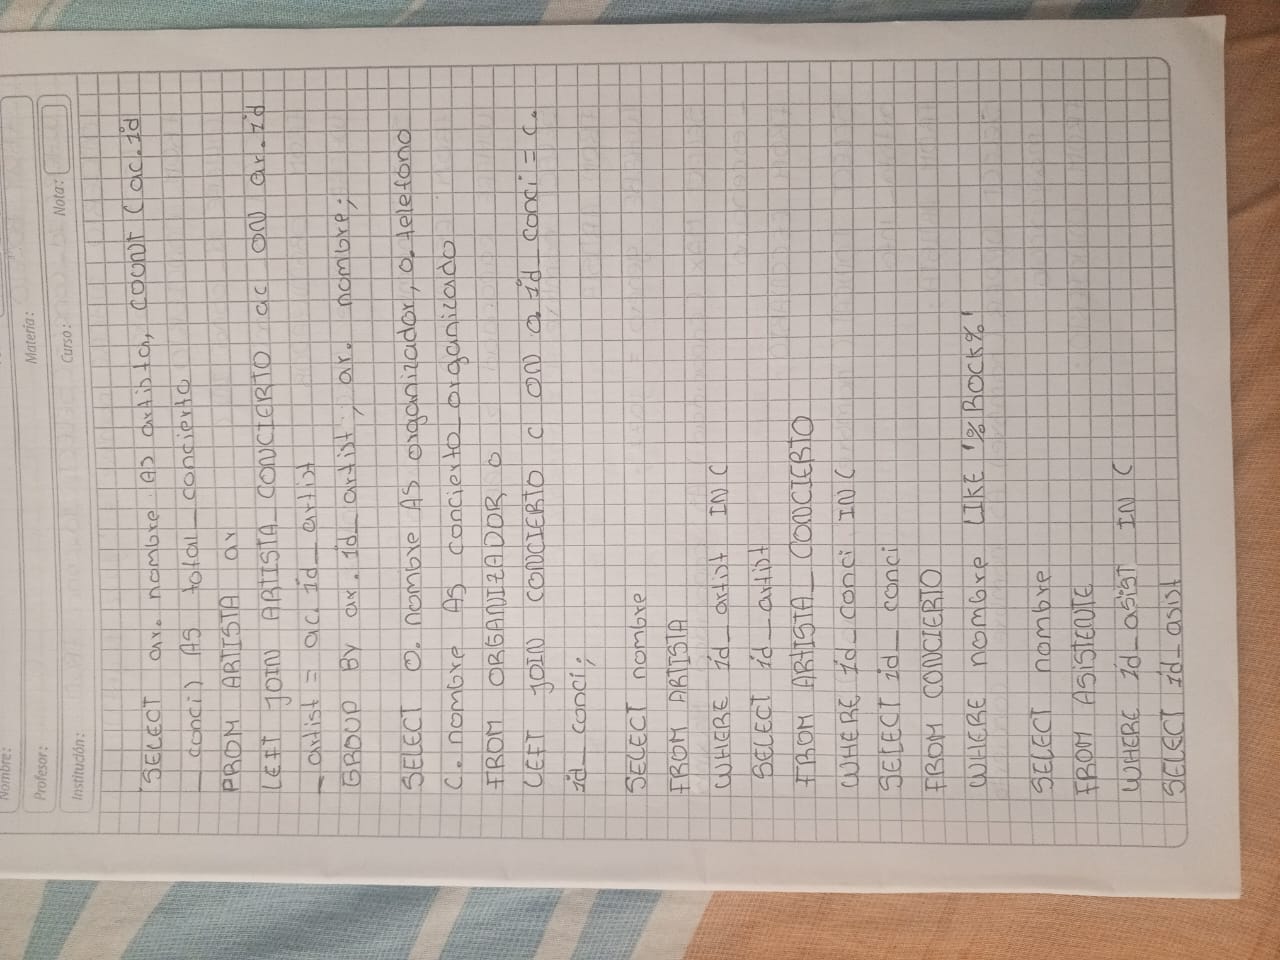 Nombre:
Profesor: Materia:
Institución: Curso: Nota:
SELECT ar. nombre AS artista, COUNT (ac.id
_ conci) AS total_concierto
FROM ARTISTA ar
LEFT JOIN ARTISTA CONCIERTO ac ON ar.id
_ artist = ac. id_ artist
GROUP BY ar. id_artist, ar. nombre;
SELECT O. nombre AS organizador, o.telefono
C. nombre AS concierto_organizado
FROM ORGANIZADOR O
LEFT JOIN CONCIERTO C ON o.id_conci = C.
id_ conci;
SELECT nombre
FROM ARTISTA
WHERE id_artist IN (
SELECT id_artist
FROM ARTISTA_CONCIERTO
WHERE id_conci IN (
SELECT id_conci
FROM CONCIERTO
WHERE nombre LIKE '%Rock%'
SELECT nombre
FROM ASISTENTE
WHERE id_asist IN (
SELECT id_asist